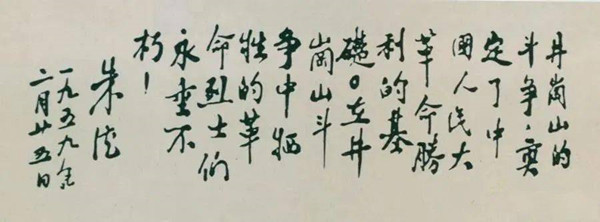 井崗山的
斗争，奠
定了中
國人民大
革命勝
利的基
礎。在井
崗山斗
争中牺
牲的革
命烈士们
永垂不
朽！
朱德
一九五九年
二月廿五日